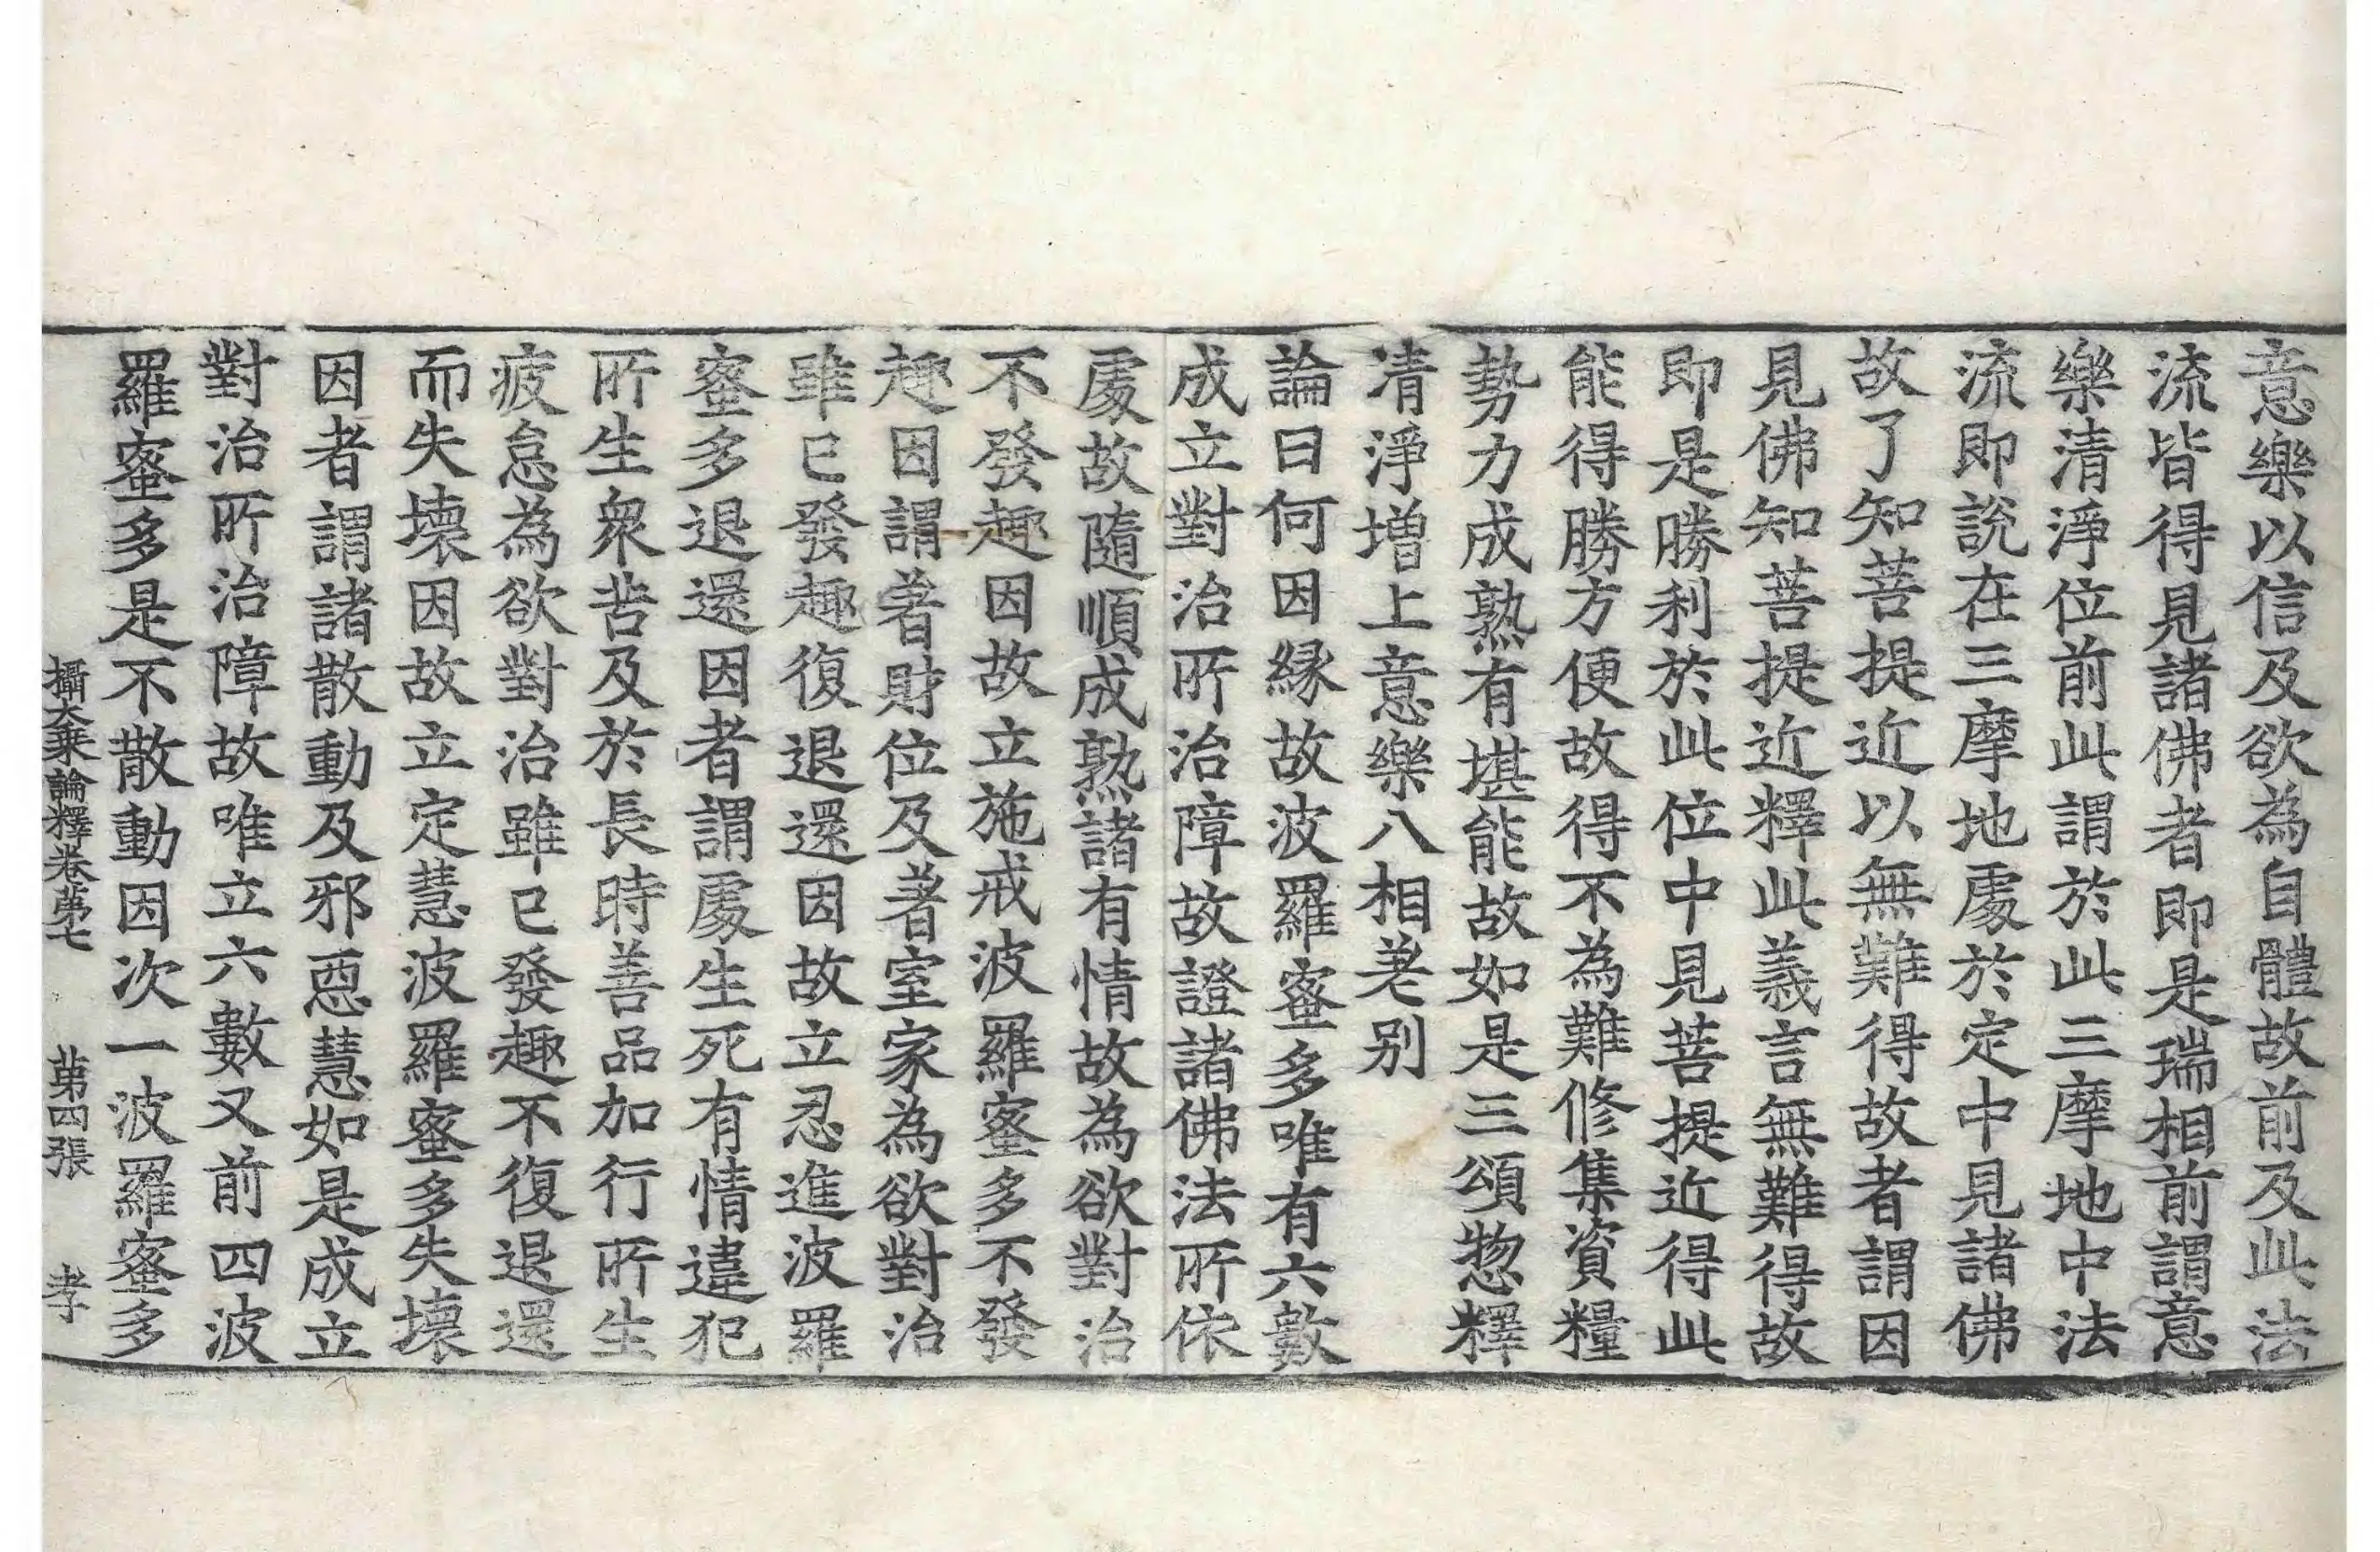 意樂以信及欲為自體故前及此法
流皆得見諸佛者即是瑞相前謂意
樂清淨位前此謂於此三摩地中法
流即說在三摩地處於定中見諸佛
故了知菩提近以無難得故者謂因
見佛知菩提近釋此義言無難得故
即是勝利於此位中見菩提近得此
能得勝方便故得不為難修集資糧
勢力成熟有堪能故如是三頌惣釋
清淨增上意樂八相差別
論曰何因緣故波羅蜜多唯有六數
成立對治所治障故證諸佛法所依
處故隨順成熟諸有情故為欲對治
不發趣因故立施戒波羅蜜多不發
趣因謂著財位及著室家為欲對治
雖已發趣復退還因故立忍進波羅
蜜多退還因者謂處生死有情違犯
所生衆苦及於長時善品加行所生
疲怠為欲對治雖已發趣不復退還
而失壞因故立定慧波羅蜜多失壞
因者謂諸散動及邪惡慧如是成立
對治所治障故唯立六數又前四波
羅蜜多是不散動因次一波羅蜜多
攝大乘論釋卷第七 第四張 孝